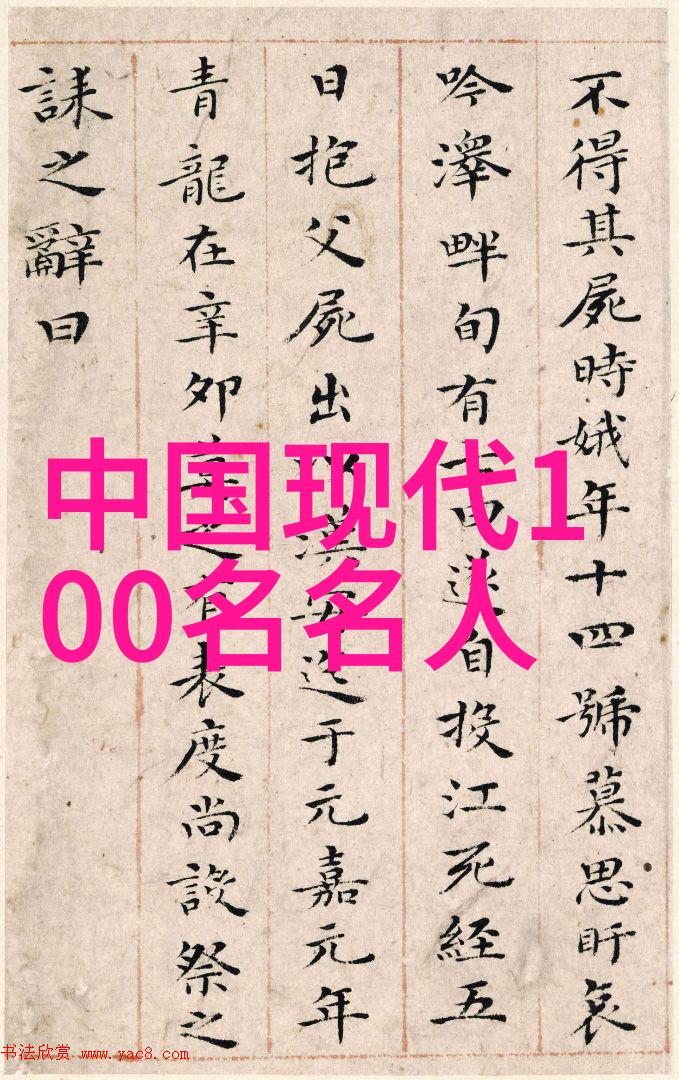 不得其屍時娥年十四號慕思盱哀
吟澤畔旬有遂自投江死經五
日抱父屍出以漢安迄于元嘉元年
青龍在辛卯之有表度尚設祭之
誄之辭曰
中国现代1
00名名人
书法欣赏 www.yac8.com